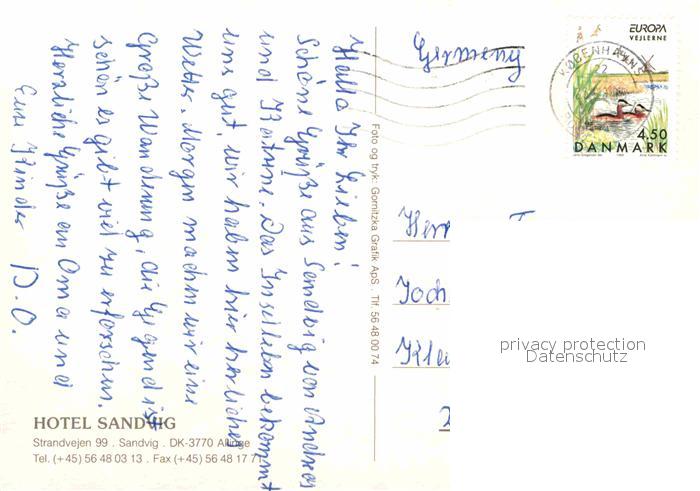 Hallo Ihr Lieben!
Schöne Grüße aus Sandvig von Andrea
und Katrine. Das Inselleben bekommt
uns gut, wir haben hier herrliches
Wetter. Morgen machen wir eine
Große Wanderung, die Gegend ist
schön es gibt viel zu erforschen.
Herzliche Grüße an Oma und
Eure Kinder D.O.
Germany
EUROPA
VEJLERNE
KØBENHAVNS
4.50
DANMARK
Foto og tryk: Gornitzka Grafik ApS . Tlf. 56 48 00 74
Herr
Joch
Kle
2
privacy protection
Datenschutz
HOTEL SANDVIG
Strandvejen 99 . Sandvig . DK-3770 Allinge
Tel. (+45) 56 48 03 13 . Fax (+45) 56 48 17 7